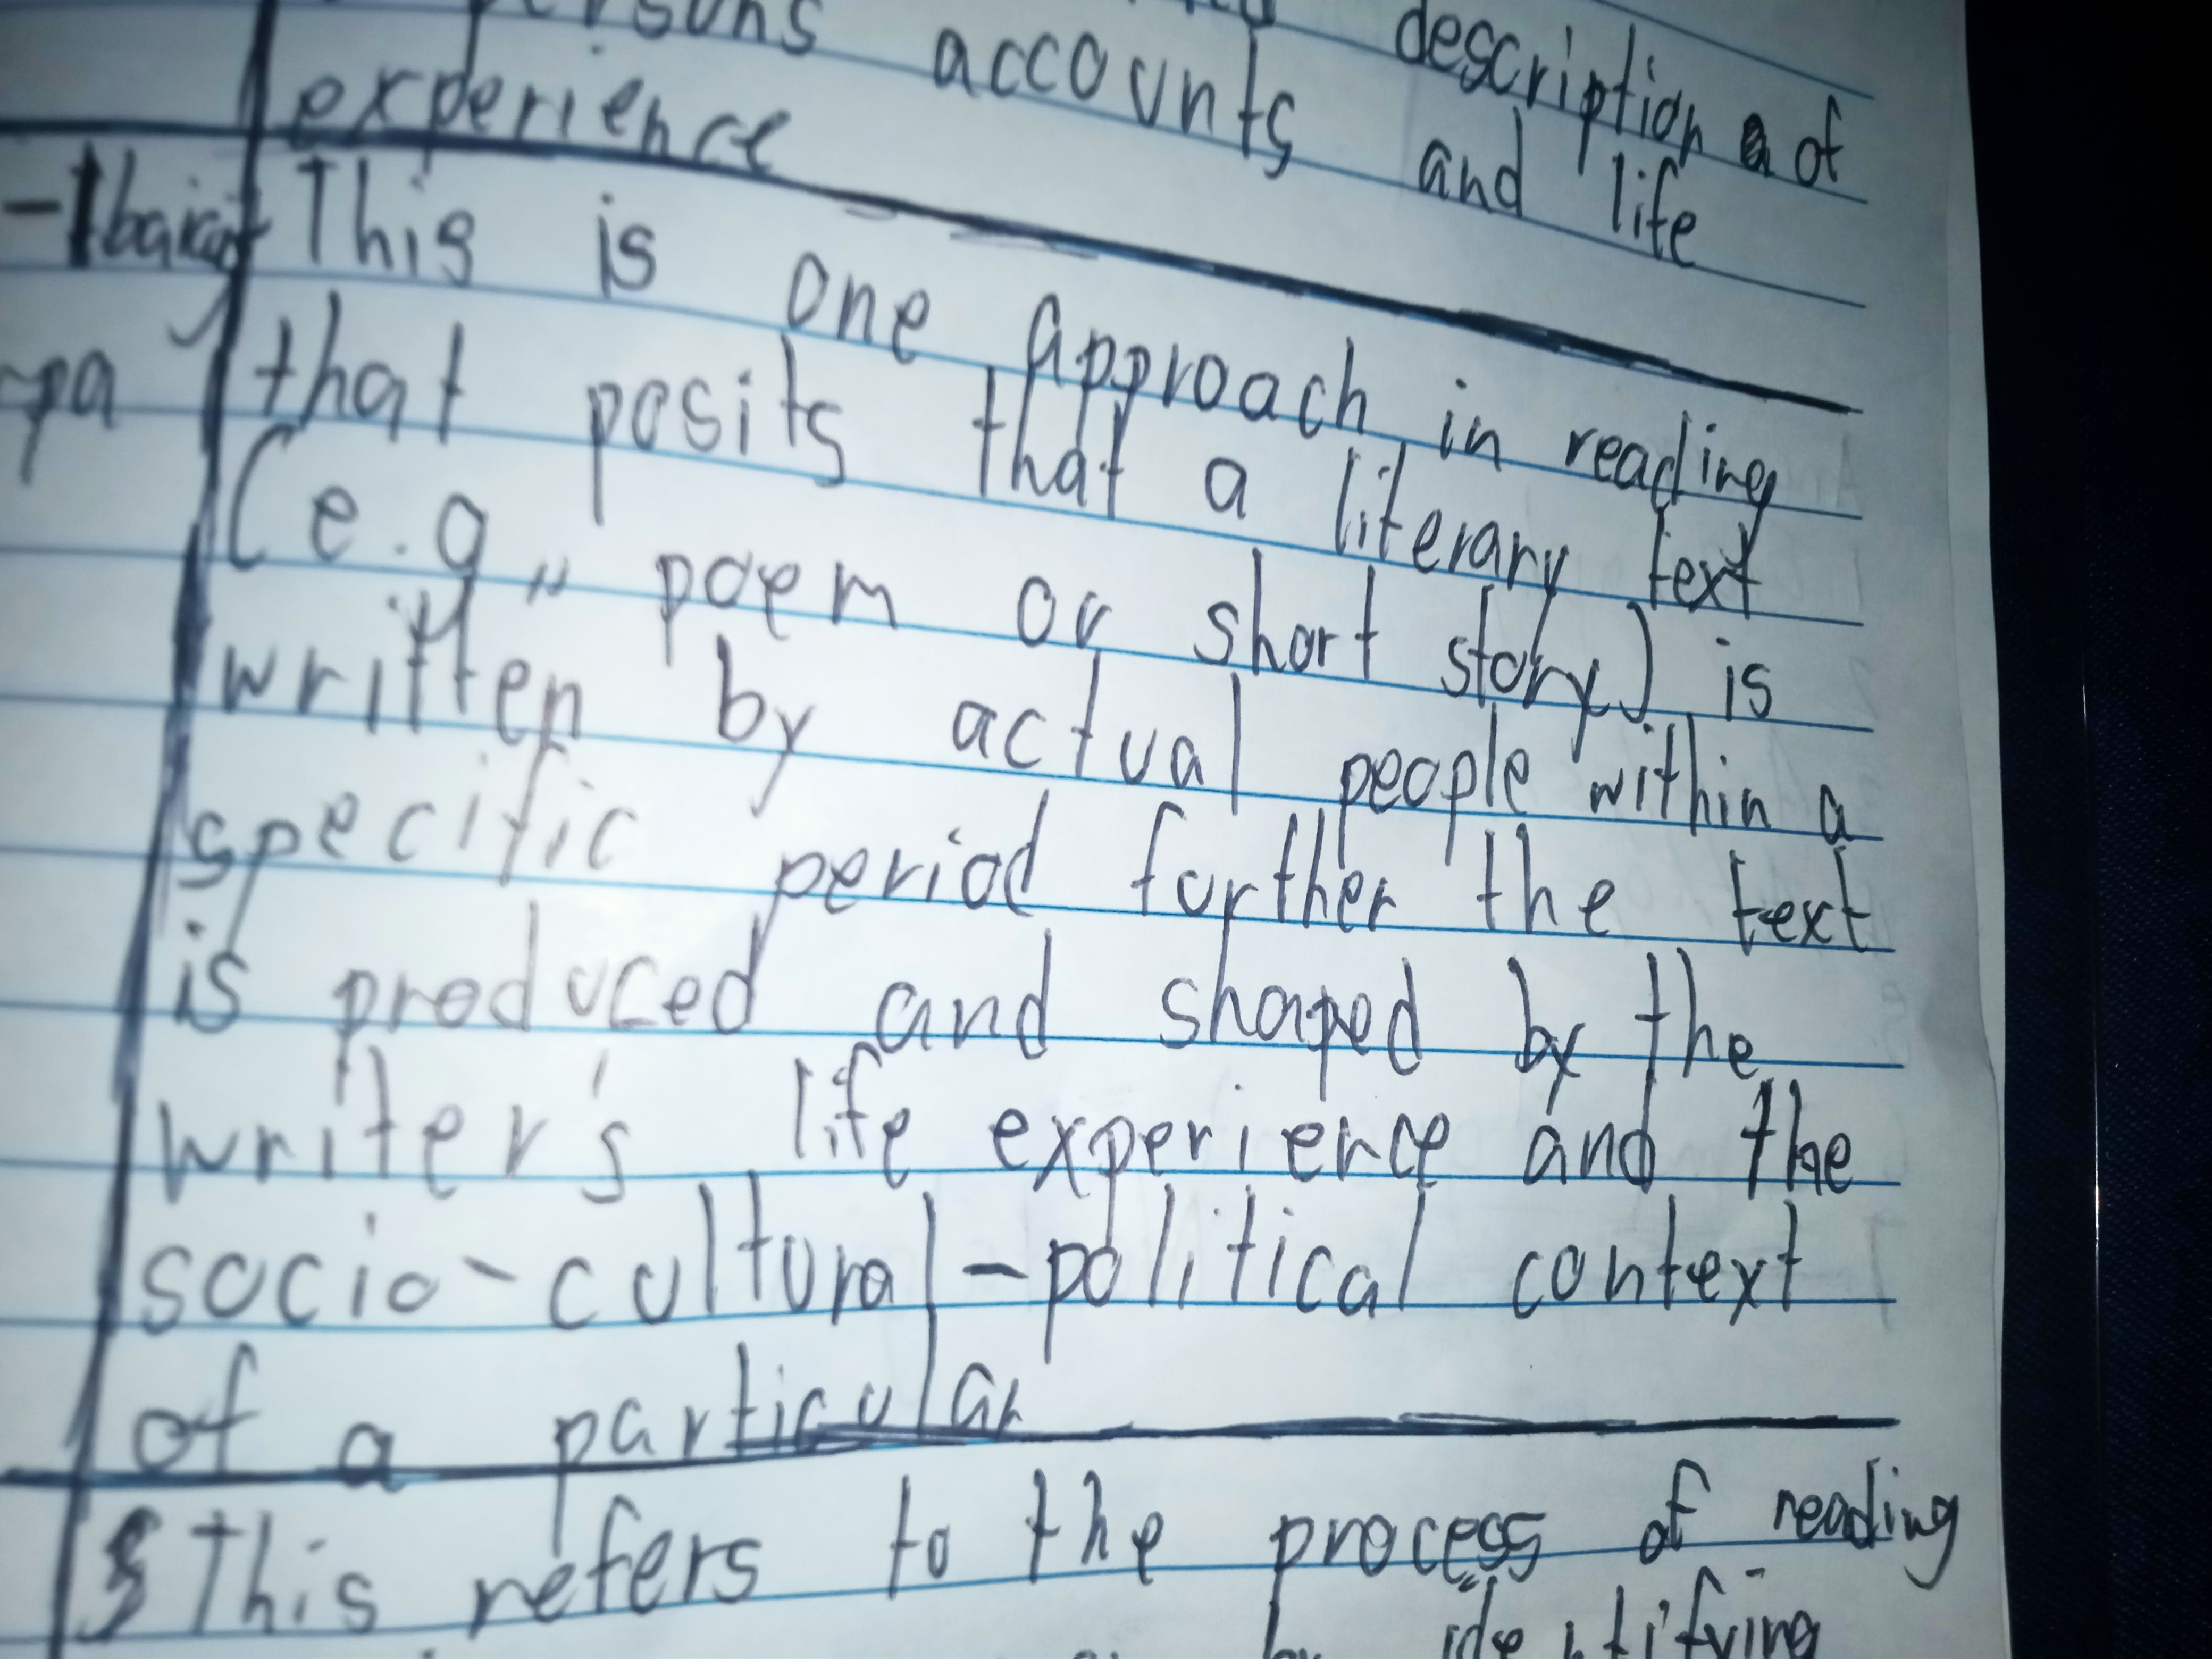 description of
accounts and life
experience
This is one approach in reading
that posits that a literary text
(e.g,, poem or short story) is
written by actual people within a
specific period further the text
is produced and shaped by the
writer's life experience and the
socio-cultural-political context
of a particular
This refers to the process of reading
by identifying